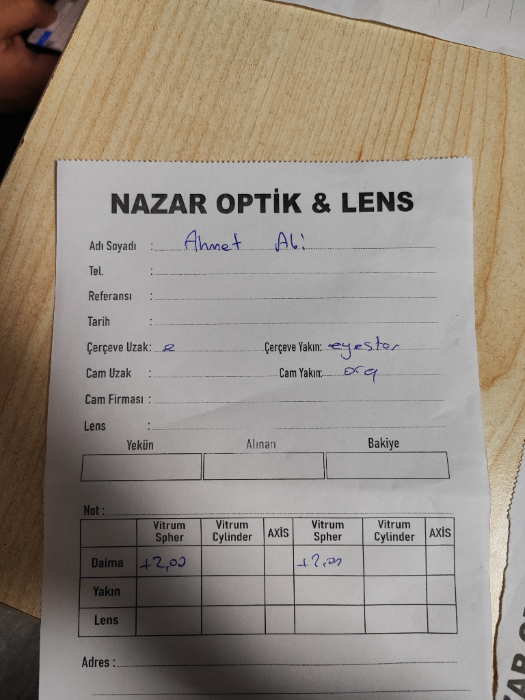 NAZAR OPTİK & LENS
Adı Soyadı : Ahmet Abi
Tel. :
Referansı :
Tarih :
Çerçeve Uzak: e Çerçeve Yakın: eyestar
Cam Uzak : Cam Yakın: org
Cam Firması :
Lens :
Yekün Alınan Bakiye
Not :
Vitrum Spher Vitrum Cylinder AXİS Vitrum Spher Vitrum Cylinder AXİS
Daima +2,00 +2,00
Yakın
Lens
Adres :